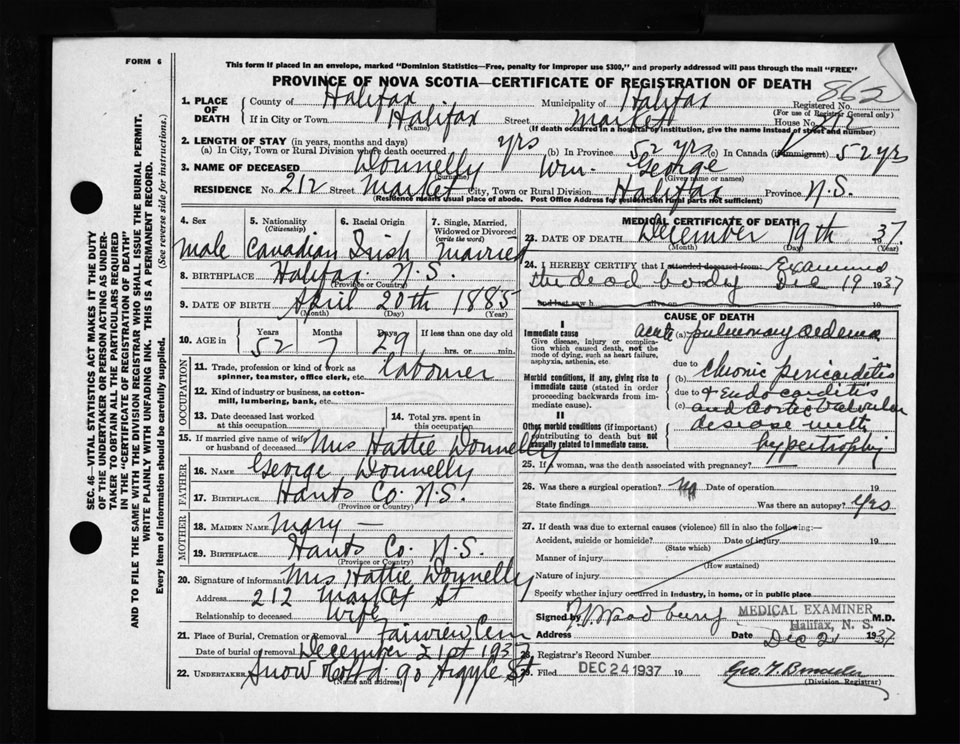 FORM 6
This form if placed in an envelope, marked "Dominion Statistics—Free, penalty for improper use $300," and properly addressed will pass through the mail "FREE"
PROVINCE OF NOVA SCOTIA—CERTIFICATE OF REGISTRATION OF DEATH
862
1. PLACE OF DEATH County of Halifax Municipality of Halifax Registered No.
(For use of Registrar General only)
If in City or Town Halifax Street Market House No. 212
(Name) (If death occurred in a hospital or institution, give the name instead of street and number)
2. LENGTH OF STAY (in years, months and days)
(a) In City, Town or Rural Division where death occurred yrs (b) In Province 52 yrs (c) In Canada (if immigrant) 52 yrs
3. NAME OF DECEASED Donnelly Wm. George
(Surname) (Given name or names)
RESIDENCE No. 212 Street Market City, Town or Rural Division Halifax Province N.S.
(Residence means usual place of abode. Post Office Address for residents in rural parts not sufficient)
4. Sex 5. Nationality (Citizenship) 6. Racial Origin 7. Single, Married, Widowed or Divorced (write the word)
Male Canadian Irish Married
8. BIRTHPLACE Halifax N.S.
(Province or Country)
9. DATE OF BIRTH April 20th 1885
(Month) (Day) (Year)
10. AGE in Years Months Days If less than one day old
52 7 29 hrs. or min.
OCCUPATION
11. Trade, profession or kind of work as spinner, teamster, office clerk, etc. Labourer
12. Kind of industry or business, as cotton-mill, lumbering, bank, etc.
13. Date deceased last worked at this occupation 14. Total yrs. spent in this occupation
15. If married give name of wife or husband of deceased Mrs Hattie Donnelly
FATHER
16. NAME George Donnelly
17. BIRTHPLACE Hants Co. N.S.
(Province or Country)
MOTHER
18. MAIDEN NAME Mary —
19. BIRTHPLACE Hants Co. N.S.
(Province or Country)
20. Signature of informant Mrs Hattie Donnelly
Address 212 Market St
Relationship to deceased Wife
21. Place of Burial, Cremation or Removal Fairview Cem
Date of burial or removal December 21st 1937
22. UNDERTAKER Snow & Co Ltd. 90 Argyle St
(Name and address)
MEDICAL CERTIFICATE OF DEATH
23. DATE OF DEATH December 19th 1937
(Month) (Day) (Year)
24. I HEREBY CERTIFY that I attended deceased from: Examined
the dead body Dec 19 1937
and last saw h alive on
CAUSE OF DEATH
I
Immediate cause acute (a) pulmonary oedema
Give disease, injury or complication which caused death, not the mode of dying, such as heart failure, asphyxia, asthenia, etc.
due to
Morbid conditions, if any, giving rise to immediate cause (stated in order proceeding backwards from immediate cause).
(b) Chronic pericarditis
due to & Endocarditis
(c) and aortic valvular
II
Other morbid conditions (if important) contributing to death but not causally related to immediate cause.
disease with
hypertrophy
25. If a woman, was the death associated with pregnancy?
26. Was there a surgical operation? no Date of operation 19
State findings Was there an autopsy? Yrs
27. If death was due to external causes (violence) fill in also the following:—
Accident, suicide or homicide? Date of injury 19
(State which)
Manner of injury
(How sustained)
Nature of injury
Specify whether injury occurred in industry, in home, or in public place
Signed by Woodbury MEDICAL EXAMINER M.D.
Halifax, N. S.
Address Date Dec 21 1937
28. Registrar's Record Number
29. Filed DEC 24 1937 19
(Division Registrar)
SEC. 46—VITAL STATISTICS ACT MAKES IT THE DUTY
OF THE UNDERTAKER OR PERSON ACTING AS UNDER-
TAKER TO OBTAIN ALL THE PARTICULARS REQUIRED
IN THE "CERTIFICATE OF REGISTRATION OF DEATH"
AND TO FILE THE SAME WITH THE DIVISION REGISTRAR WHO SHALL ISSUE THE BURIAL PERMIT.
WRITE PLAINLY WITH UNFADING INK. THIS IS A PERMANENT RECORD.
Every item of Information should be carefully supplied. (See reverse side for instructions.)